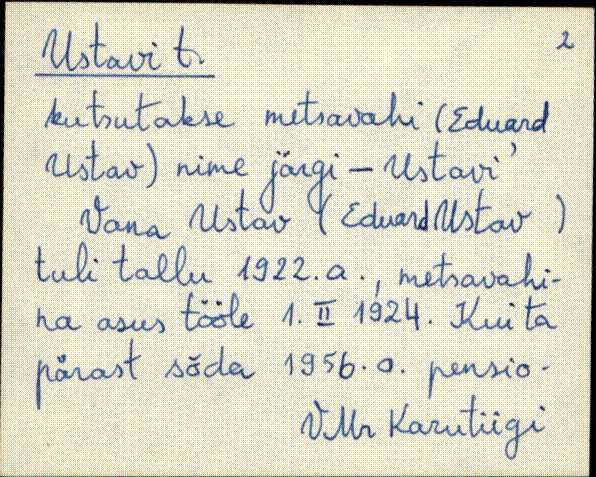 Ustavi t.
2
kutsutakse metsavahi (Eduard
Ustav) nime järgi – Ustavi'
Vana Ustav (Eduard Ustav)
tuli tallu 1922.a., metsavahi-
na asus tööle 1. II 1924. Kui ta
pärast sõda 1956.a. pensio-
VMr Karutiigi